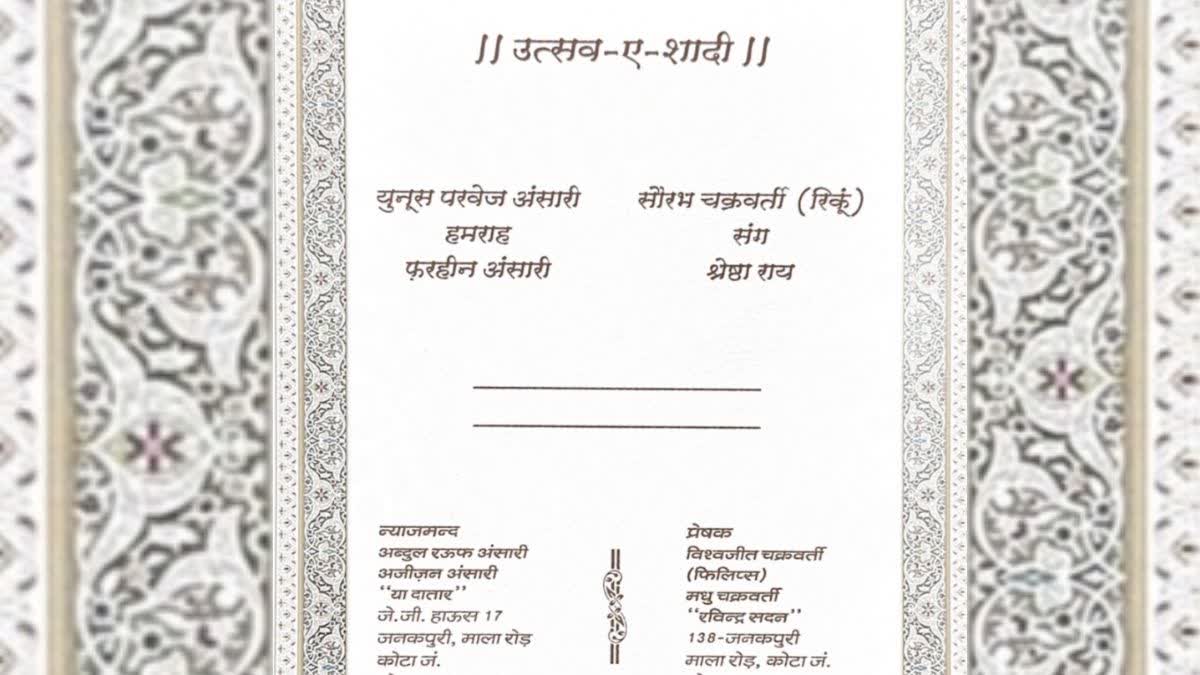 || उत्सव-ए-शादी ||
युनूस परवेज अंसारी
हमराह
फ़रहीन अंसारी
सौरभ चक्रवर्ती (रिकूं)
संग
श्रेष्ठा राय
न्याजमन्द
अब्दुल रऊफ अंसारी
अजीज़न अंसारी
"या दातार"
जे.जी. हाऊस 17
जनकपुरी, माला रोड़
कोटा जं.
प्रेषक
विश्वजीत चक्रवर्ती
(फिलिप्स)
मधु चक्रवर्ती
"रविन्द्र सदन"
138-जनकपुरी
माला रोड़, कोटा जं.